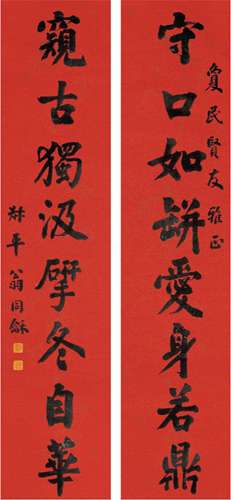 守口如缾愛身若鼎
夐民賢友雅正
窺古獨汲擘冬自華
叔平翁同龢